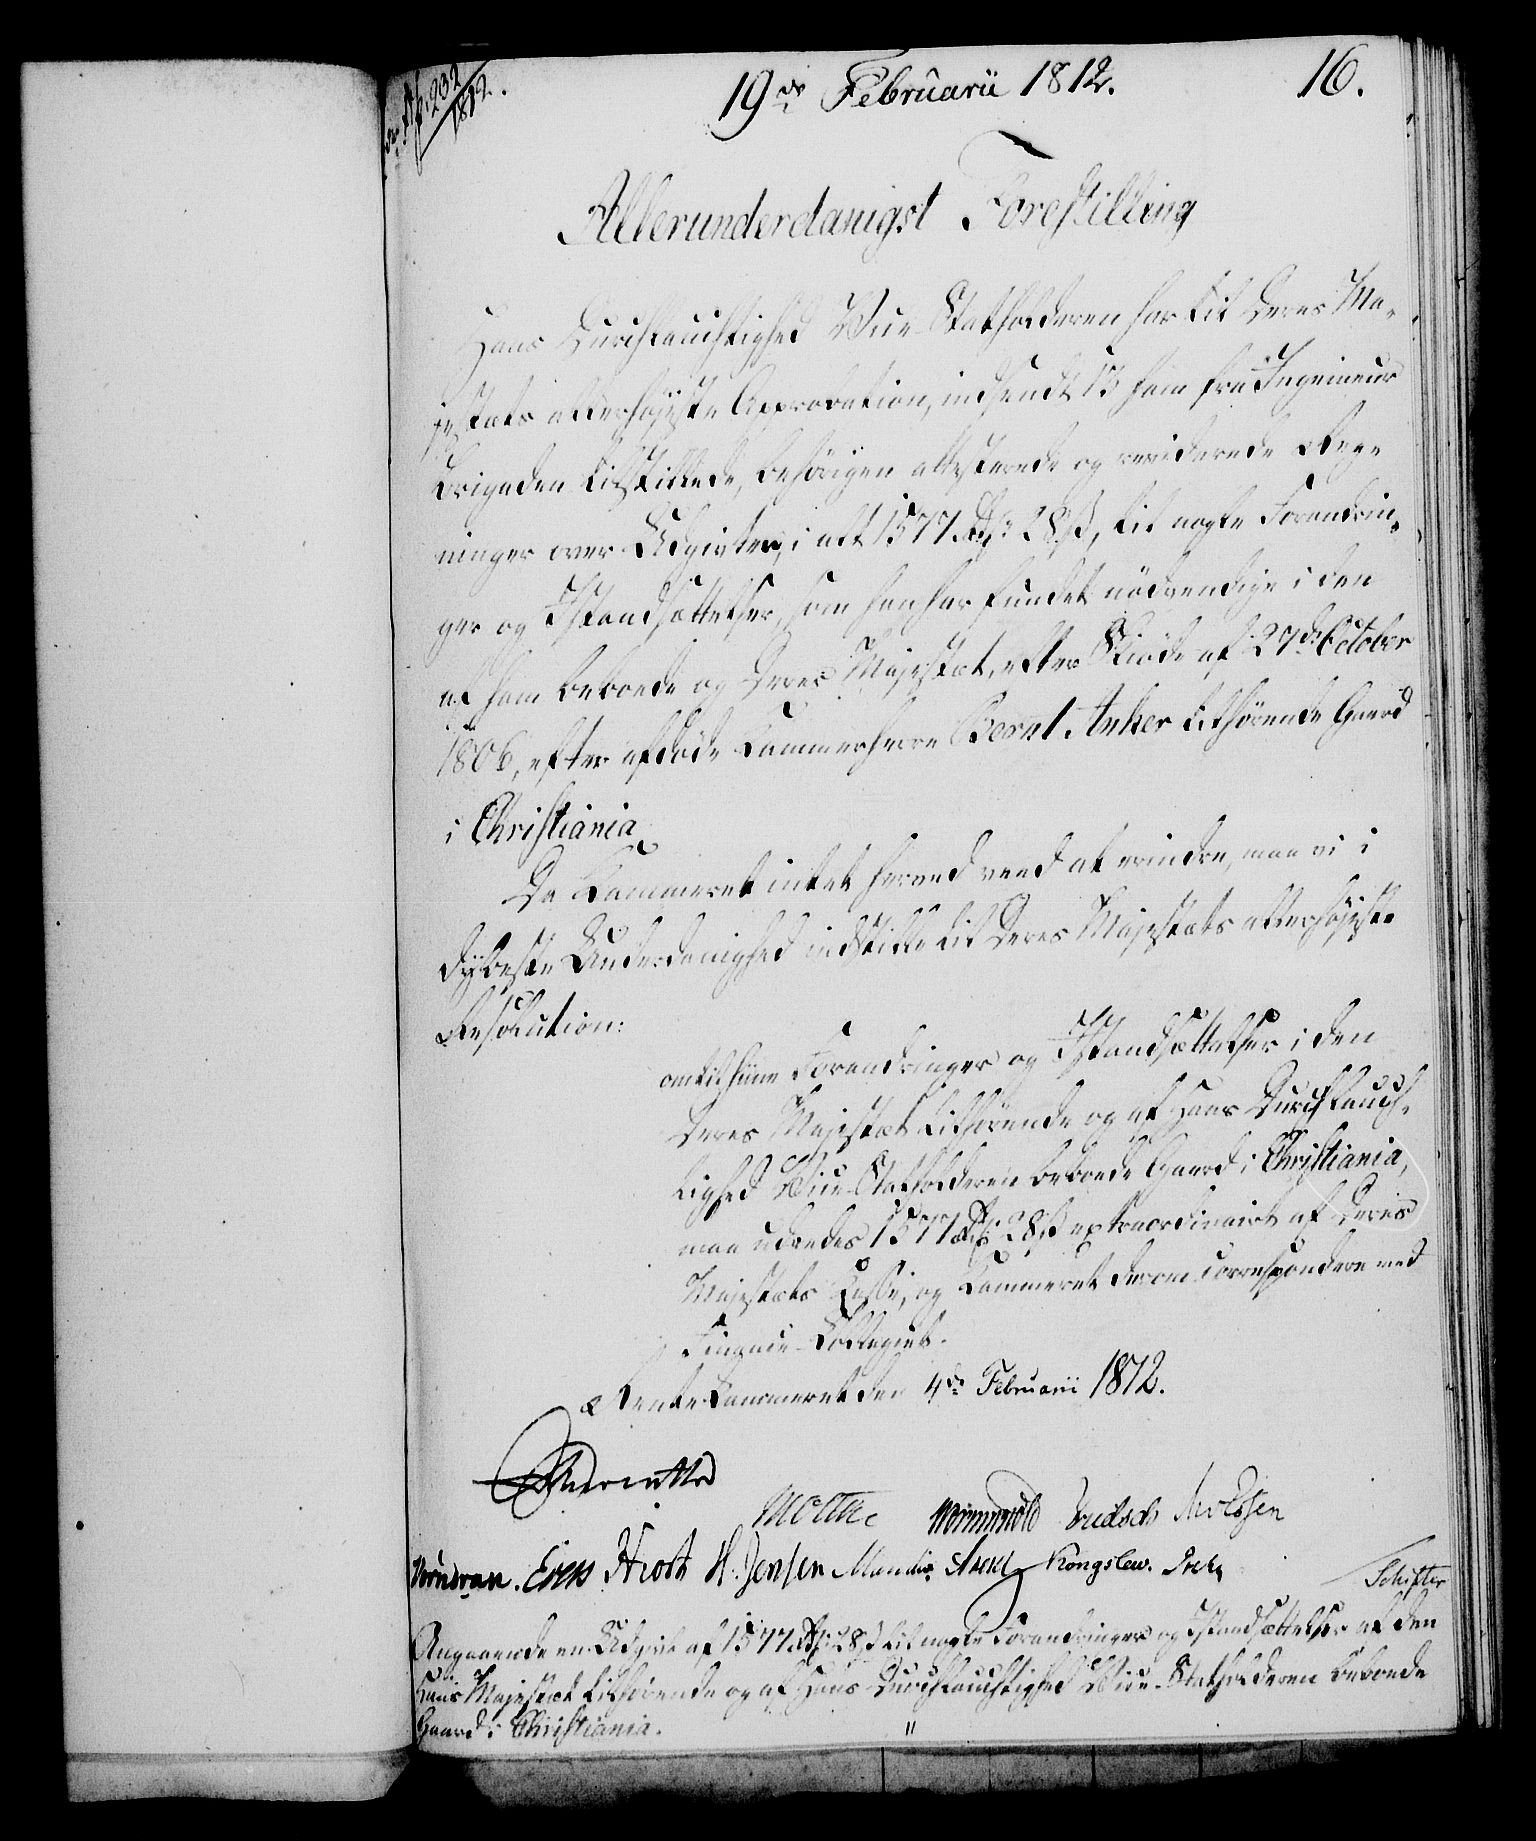 No: 232
1812.
19de Februarii 1812.
16.
Allerunderdanigst Forestilling
Hans Durchlauchtighed Vice-Statholderen har til Deres Ma-
jestæts allerhøjeste Approbation, indsendt 13 ham fra Ingenieur
Brigaden tilstillede, behørigen attesterede og reviderede Regn-
ninger over Udgivter, i alt 1577 Rd: 28 ß, til nogle Forandrin-
ger og Istandsættelser, som han har fundet nødvendige i den
af ham beboede og Deres Majestæt, efter Skiøde af 27de October
1806, efter afdøde Kammerherre Bernt Anker tilhørende Gaard
i Christiania.
Da Kammeret intet herved veed at erindre, maa vi i
dybeste Underdanighed indstille til Deres Majestæts allerhøjeste
Resolution:
om til hine Forandringer og Istandsættelser i den
Deres Majestæt tilhørende og af Hans Durchlauch-
tighed Vice-Statholderen beboede Gaard i Christiania,
maa udredes 1577 Rd: 28 ß extraordinairt af Deres
Majestæts Casse, og Kammeret derom correspondere med
Finants-Collegiet.
Rente Kammeret den 4de Februarii 1812.
Moltke Wormskiold
Hiort H. Jensen Kongslew.
Schifter
Angaaende en Udgivt af 1577 Rd: 28 ß til nogle Forandringer og Istandsættelser af den
Hans Majestæt tilhørende og af Hans Durchlauchtighed Vice-Statholderen beboede
Gaard i Christiania.